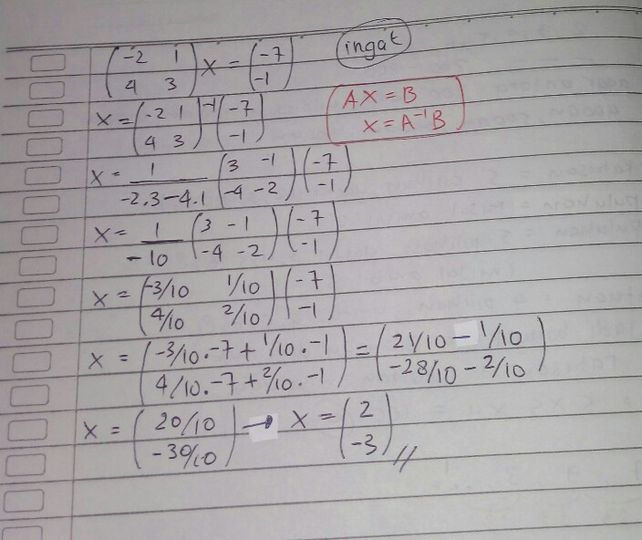 (-2 1 / 4 3) X = (-7 / -1)
ingat
X = (-2 1 / 4 3)⁻¹ (-7 / -1)
AX = B
X = A⁻¹B
X = 1/(-2.3-4.1) (3 -1 / -4 -2) (-7 / -1)
X = 1/-10 (3 -1 / -4 -2) (-7 / -1)
X = (-3/10 1/10 / 4/10 2/10) (-7 / -1)
X = (-3/10.-7 + 1/10.-1 / 4/10.-7 + 2/10.-1) = (21/10 - 1/10 / -28/10 - 2/10)
X = (20/10 / -30/10) → X = (2 / -3) //